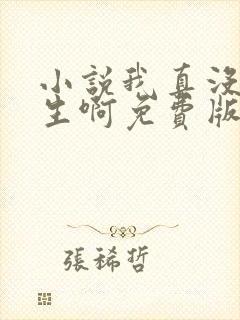 小說我真沒
生啊免費版
張稀哲